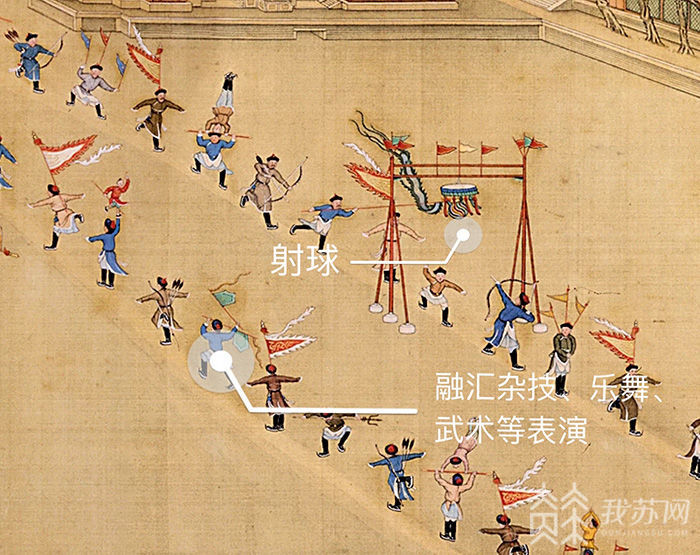 射球
融汇杂技、乐舞、
武术等表演
我苏网
OUR.JIANGSU.COM